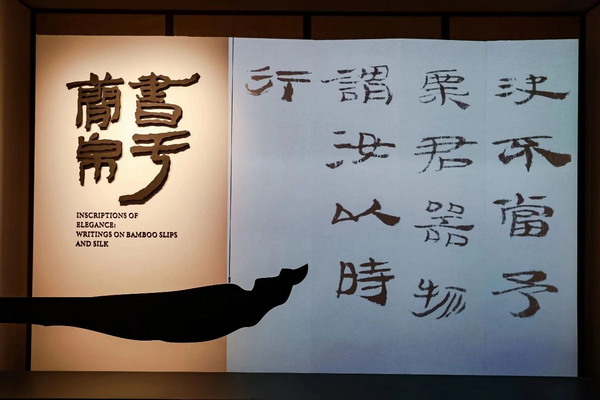 書于
簡帛
INSCRIPTIONS OF
ELEGANCE:
WRITINGS ON BAMBOO SLIPS
AND SILK
決不當予
粟君器物
謂汝以時
行